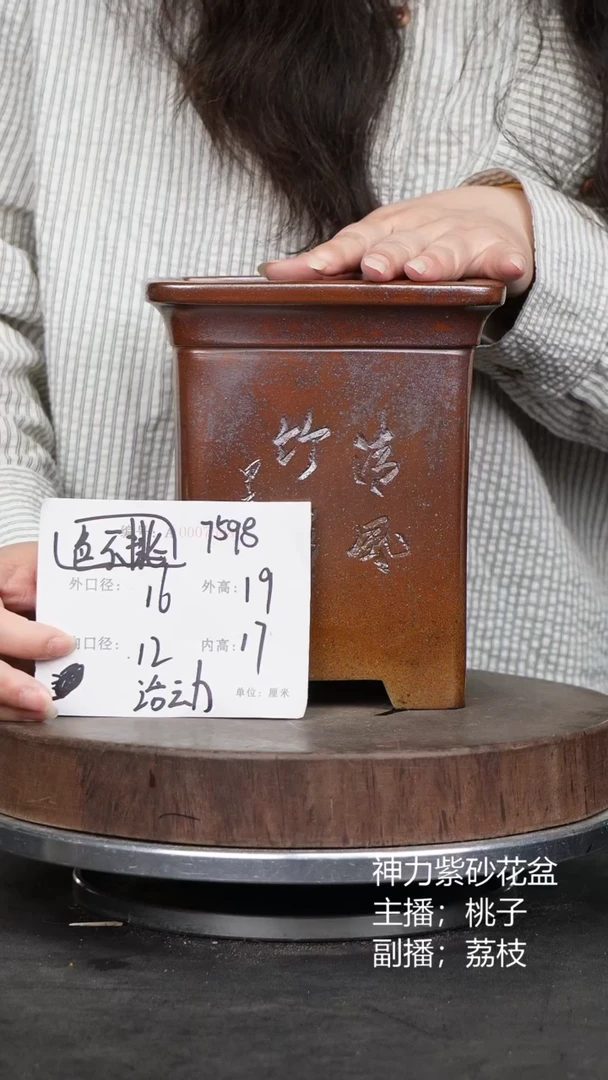 清風
竹
色不挑 7598
外口径: 16 外高: 19
内口径: 12 内高: 17
浩云力
单位: 厘米
神力紫砂花盆
主播；桃子
副播；荔枝